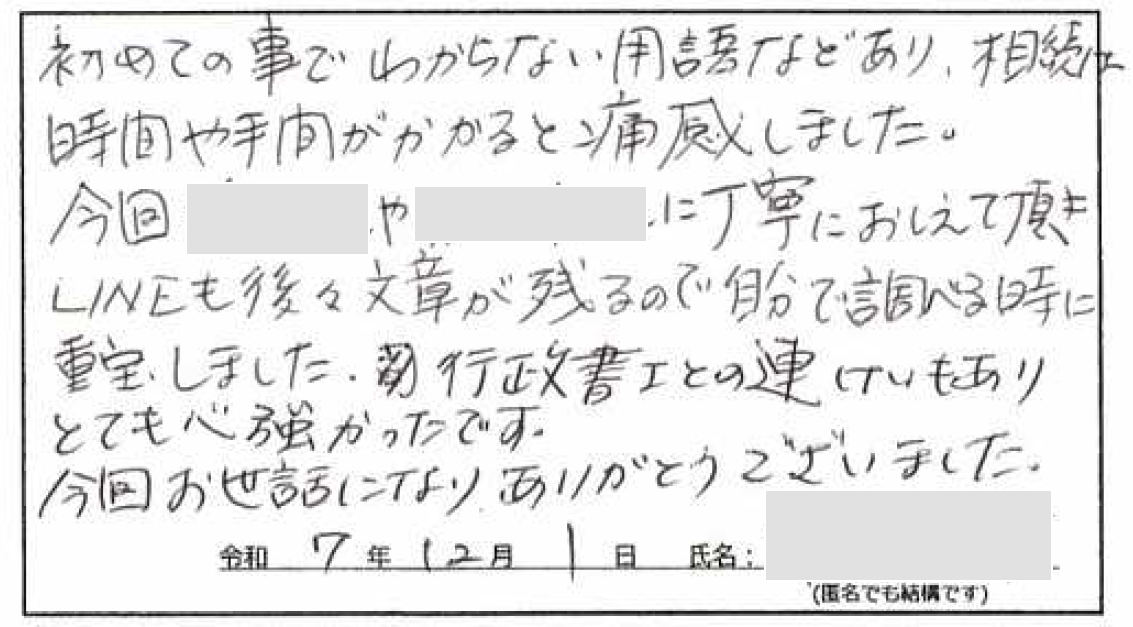 初めての事でわからない用語などあり、相続は
時間や手間がかかると痛感しました。
今回 や に丁寧におしえて頂き
LINEも後々文章が残るので自分で調べる時に
重宝しました。行政書士との連けいもあり
とても心強かったです。
今回お世話になりありがとうございました。
令和 7 年 12 月 1 日 氏名:
(匿名でも結構です)